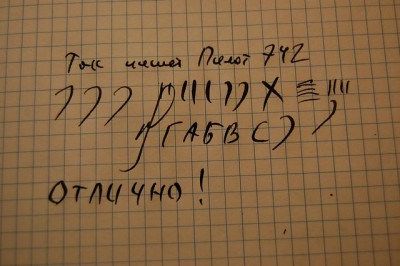 Так пишет Пилот 742
ГАБВС
ОТЛИЧНО!